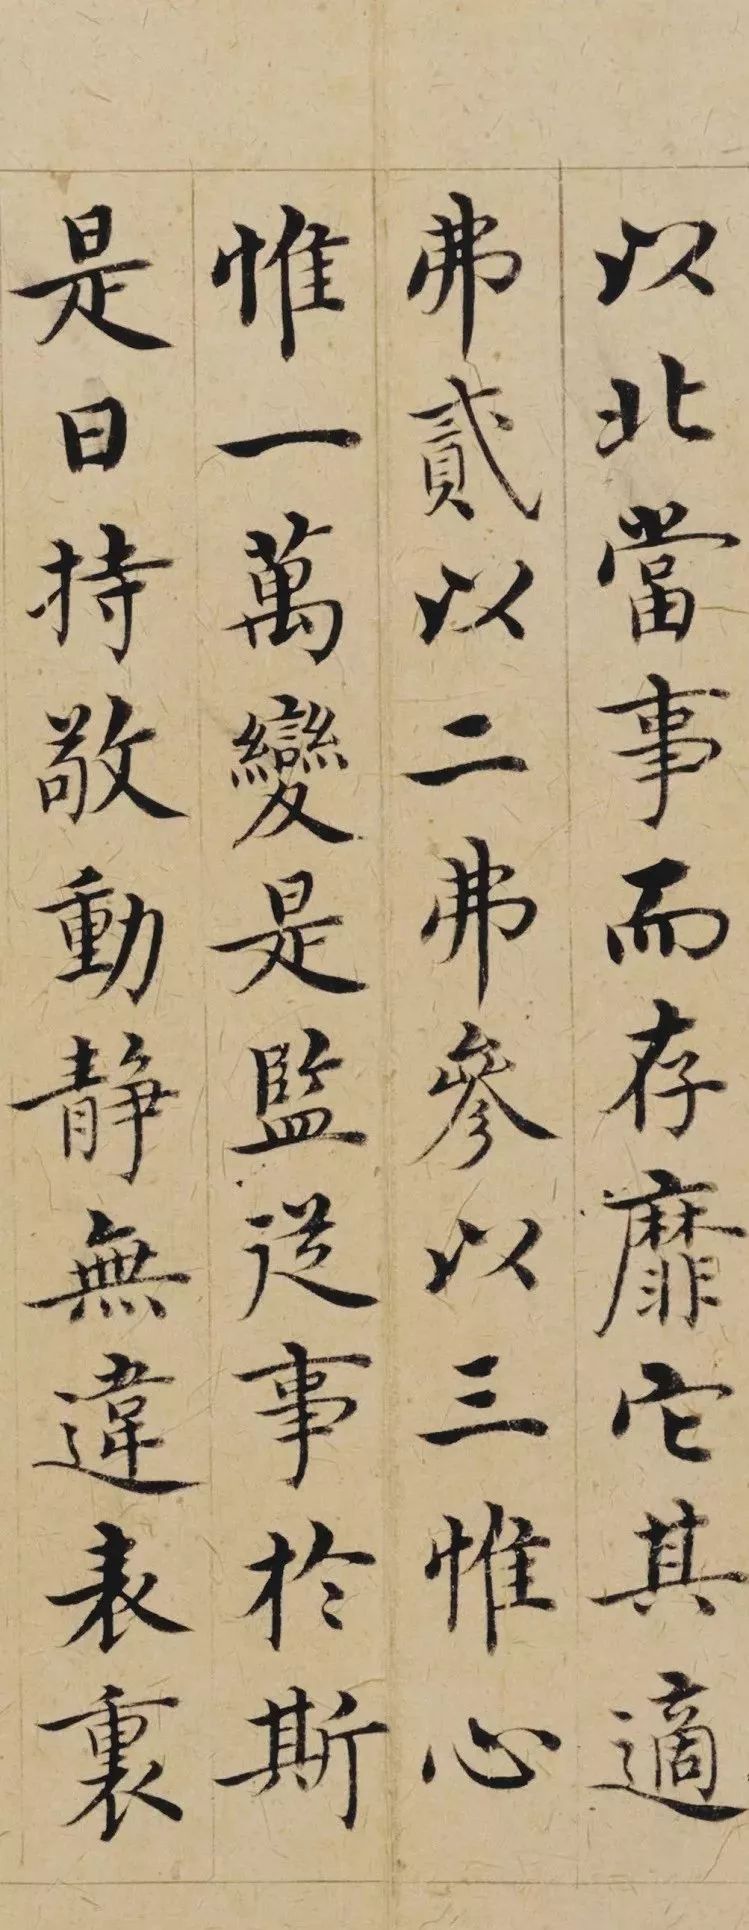 以北當事而存靡它其適
弗貳以二弗參以三惟心
惟一萬變是監従事於斯
是曰持敬動静無違表裏